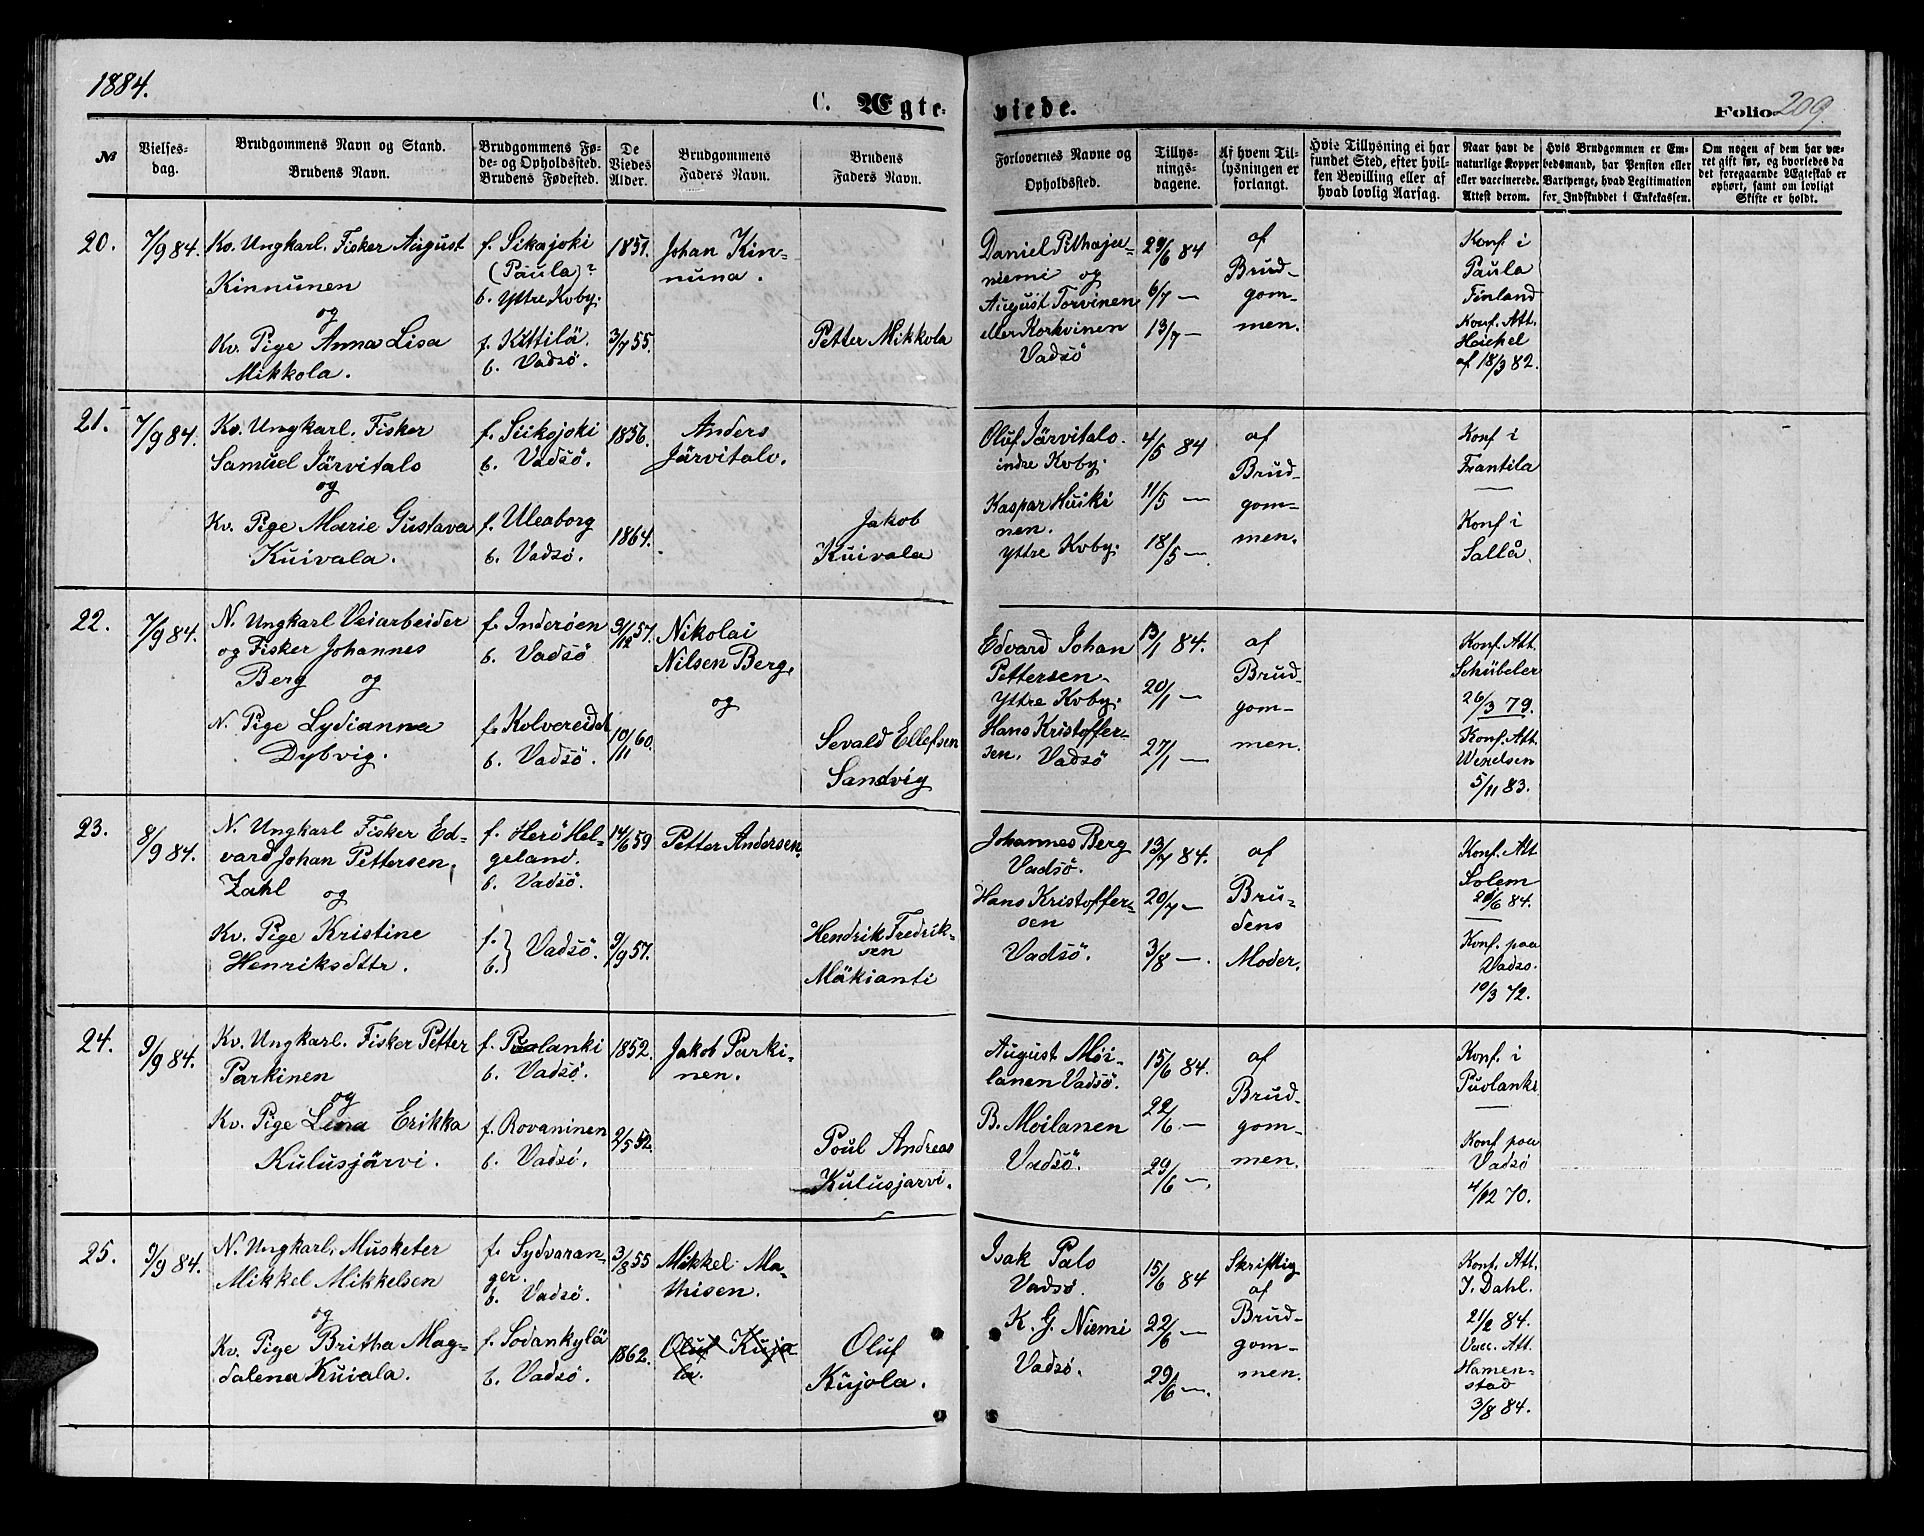 1884.
C. Ægte-
viede.
Folio 209.
№
Vielses-
dag.
Brudgommens Navn og Stand.
Brudens Navn.
Brudgommens Fø-
de- og Opholdssted.
Brudens Fødested.
De
Viedes
Alder.
Brudgommens
Faders Navn.
Brudens
Faders Navn.
Forlovernes Navne og
Opholdssted.
Tillys-
nings-
dagene.
Af hvem Til-
lysningen er
forlangt.
Hvis Tillysning ei har
fundet Sted, efter hvil-
ken Bevilling eller af
hvad lovlig Aarsag.
Naar havt de
naturlige Kopper
eller vaccinerede.
Attest derom.
Hvis Brudgommen er Em-
bedsmand, har Pension eller
Vartpenge, hvad Legitimation
for Indskuddet i Enkekassen.
Om nogen af dem har væ-
ret gift før, og hvorledes da
det foregaaende Ægteskab er
ophørt, samt om lovligt
Skifte er holdt.
20.
7/9 84.
Kv. Ungkarl. Fisker August
Kinnunen
og
Kv. Pige Anna Lisa
Mikkola.
f. Sikajoki
(Paula)?
b. Yttre Kvby.
f. Kittilä
b. Vadsö.
1851.
3/7 55.
Johan Kin-
nuna.
Petter Mikkola
Daniel Pithaja-
niemi og
August Torvinen
eller Korkvinen
Vadsö
29/6 84
6/7 —
13/7 —
af
Brud-
gom-
men.
Konf i
Paula
Finland
Konf. Att.
Heickel
af 18/3 82.
21.
7/9 84.
Kv. Ungkarl. Fisker
Samuel Järvitalo
og
Kv. Pige Marie Gustava
Kuivala.
f. Siikajoki
b. Vadsö.
f. Uleaborg
b. Vadsö.
1856.
1864.
Anders
Järvitalo.
Jakob
Kuivala
Oluf Järvitalo.
indre Kvby.
Kaspar Huiki
nen.
Yttre Kvby.
4/5 84
11/5 —
18/5 —
af
Brud-
gom-
men.
Konf i
Frantila
Konf i
Sallå.
22.
7/9 84.
N. Ungkarl Veiarbeider
og Fisker Johannes
Berg og
N. Pige Lydianna
Dybvig.
f. Inderöen
b. Vadsö
f. Kolvereidet
b. Vadsö.
9/12 57.
10/11 60.
Nikolai
Nilsen Berg.
og
Sevald Ellefsen
Sandvig
Edvard Johan
Pettersen
Yttre Kvby.
Hans Kristoffer-
sen. Vadsö
13/1 84.
20/1 —
27/1 —
af
Brud-
gom-
men.
Konf. Att.
Schübeler
26/3 79.
Konf. Att.
Wexelsen
5/11 83.
23.
8/9 84.
N. Ungkarl Fisker Ed-
vard Johan Pettersen.
Zahl og
Kv. Pige Kristine
Henriksdttr.
f. Herö Hel-
geland.
b. Vadsö.
f.
b. } Vadsö.
14/6 59
9/9 57.
Petter Andersen.
Hendrik Fredrik-
sen
Mäkianti
Johannes Berg
Vadsö.
Hans Kristoffer-
sen
Vadsö.
13/7 84.
20/7 —
3/8 —.
af
Bru-
dens
Moder.
Konf. Att
Solem
20/6 84.
Konf. paa
Vadso.
10/3 72.
24.
9/9 84.
Kv. Ungkarl. Fisker Petter
Parkinen
og
Kv. Pige Lena Erikka
Kulusjärvi.
f. Puolanki
b. Vadsö.
f. Rovaninen
b. Vadsö.
1852.
2/5 52.
Jakob Parki-
nen.
Poul Andreas
Kulusjarvi.
August Möi-
lanen Vadsö.
B. Möilanen
Vadsö.
15/6 84.
22/6 —
29/6 —.
af
Brud-
gom-
men.
Konf. i
Puolanki
Konf paa
Vadsö
4/12 70.
25.
9/9 84.
N. Ungkarl. Musketer
Mikkel Mikkelsen
og
Kv. Pige Britha Mag-
dalena Kuiala.
f. Sydvaran-
ger.
b. Vadsö.
f. Sodankylä
b. Vadsö.
3/8 55
1862.
Mikkel Ma-
thisen.
Oluf Kuja
la.
Oluf
Kujola.
Isak Palo
Vadsö.
K. G. Niemi
Vadsö.
15/6 84
22/6 —
29/6 —.
Skriftlig
af
Brud-
gom-
men.
Konf. Att.
J. Dahl.
21/2 84.
Vacc. Att.
Hamen-
stad
3/8 84.